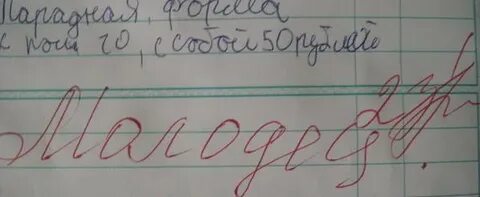 Парадная форма
к пош 20, с собой 50 рублей
Магодец!